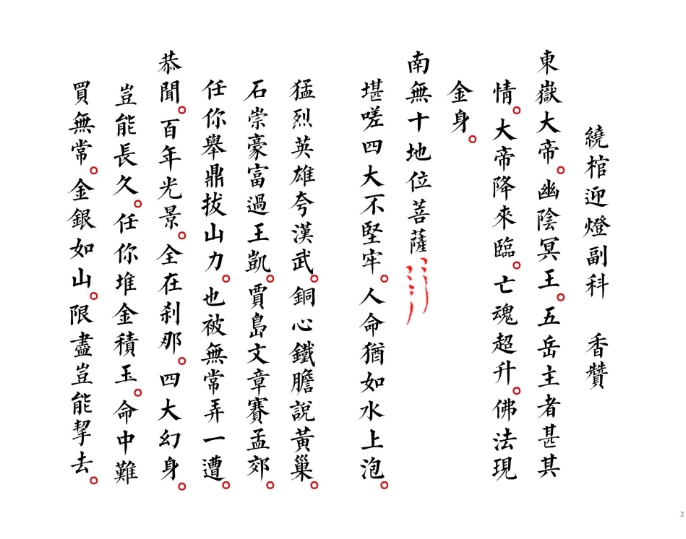 繞棺迎燈副科　香贊
東嶽大帝。幽陰冥王。五岳主者甚其
情。大帝降來臨。亡魂超升。佛法現
金身。
南無十地位菩薩
堪嗟四大不堅牢。人命猶如水上泡。
猛烈英雄夸漢武。銅心鐵膽說黃巢。
石崇豪富過王凱。賈島文章賽孟郊。
任你舉鼎拔山力。也被無常弄一遭。
恭聞。百年光景。全在刹那。四大幻身。
豈能長久。任你堆金積玉。命中難
買無常。金銀如山。限盡豈能拏去。
2